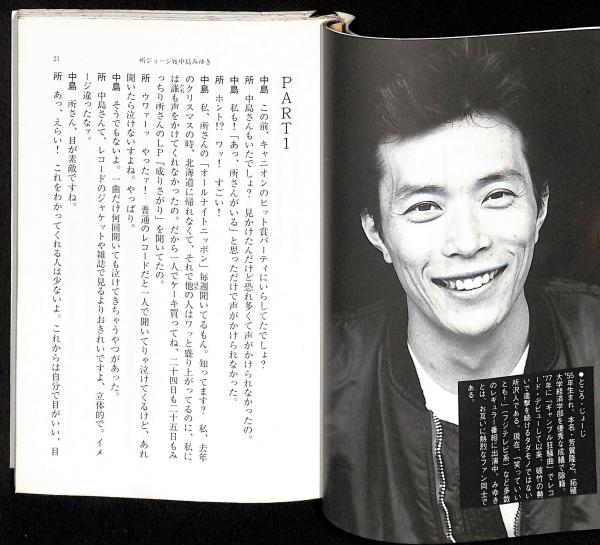 21
所ジョージVS中島みゆき
PART1
中島　この前、キャニオンのヒット賞パーティにいらしてたでしょ？
所　中島さんもいたでしょ？　見かけたんだけど恐れ多くて声がかけられなかったの。
中島　私も！「あっ、所さんがいる」と思っただけで声がかけられなかった。
所　ホント!?　ワッ！　すごい！
中島　私、所さんの「オールナイトニッポン」毎週聞いてるもん。知ってます？　私、去年
のクリスマスの時、北海道に帰れなくて、それで他の人はワッと盛り上がってるのに、私に
は誰も声をかけてくれなかったの。だから一人でケーキ買ってね、二十四日も二十五日もみ
っちり所さんのLP『成りさがり』を聞いてたの。
所　ウワァーッ　やったァ！　普通のレコードだと一人で聞いてりゃ泣けてくるけど、あれ
聞いたら泣けないすよね。やっぱり。
中島　そうでもないよ。一曲だけ何回聞いても泣けてきちゃうやつがあった。
所　中島さんて、レコードのジャケットや雑誌で見るよりおきれいですよ、立体的で。イメ
ージ違ったなァ。
中島　所さん、目が素敵ですね。
所　あっ、えらい！　これをわかってくれる人は少ないよ。これからは自分で目がいい、目
●ところ・じょーじ
'55年生まれ。本名、芳賀隆之。拓殖
大学経済学部を優秀な成績で除籍。
'77年に「ギャンブル狂騒曲」でレコ
ード・デビューして以来、破竹の勢
いで進撃を続けるタダモノではない
所沢人である。現在、「笑っていい
とも！」（フジテレビ系）など多数
のレギュラー番組に出演中。みゆき
とは、お互いに熱烈なファン同士で
ある。